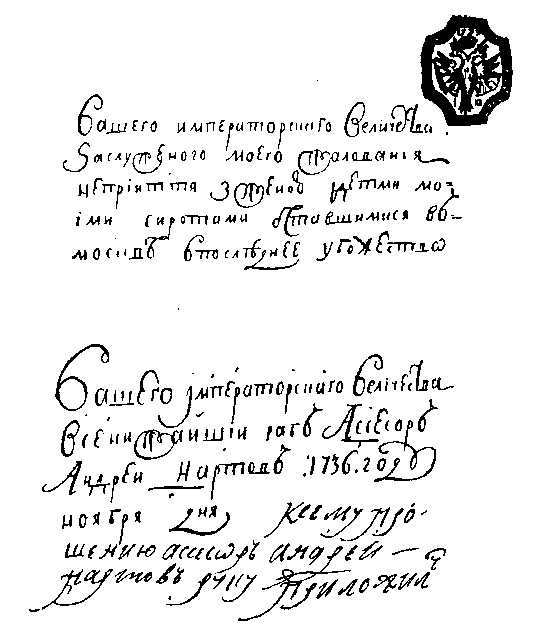 Вашего императорскаго Величества
Заслуженого моего жалованья
непріятія з женоѣ детми мо-
іми сиротами оставшимися въ
москвѣ впоследнее убожество
Вашего імператорскаго Величества
всенижайшій рабъ Асесоръ
Андреи Нартовъ 1736 году
ноября дня Ксему про-
шению асесоръ андреи
нартовъ руку приложилъ